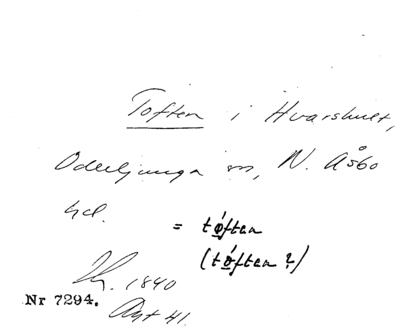 Toften i Hvarshult,
Oderljunga sn, N. Åsbo
hd.
= tǿften
(tǿften?)
1840
Nr 7294.
Avt 41.